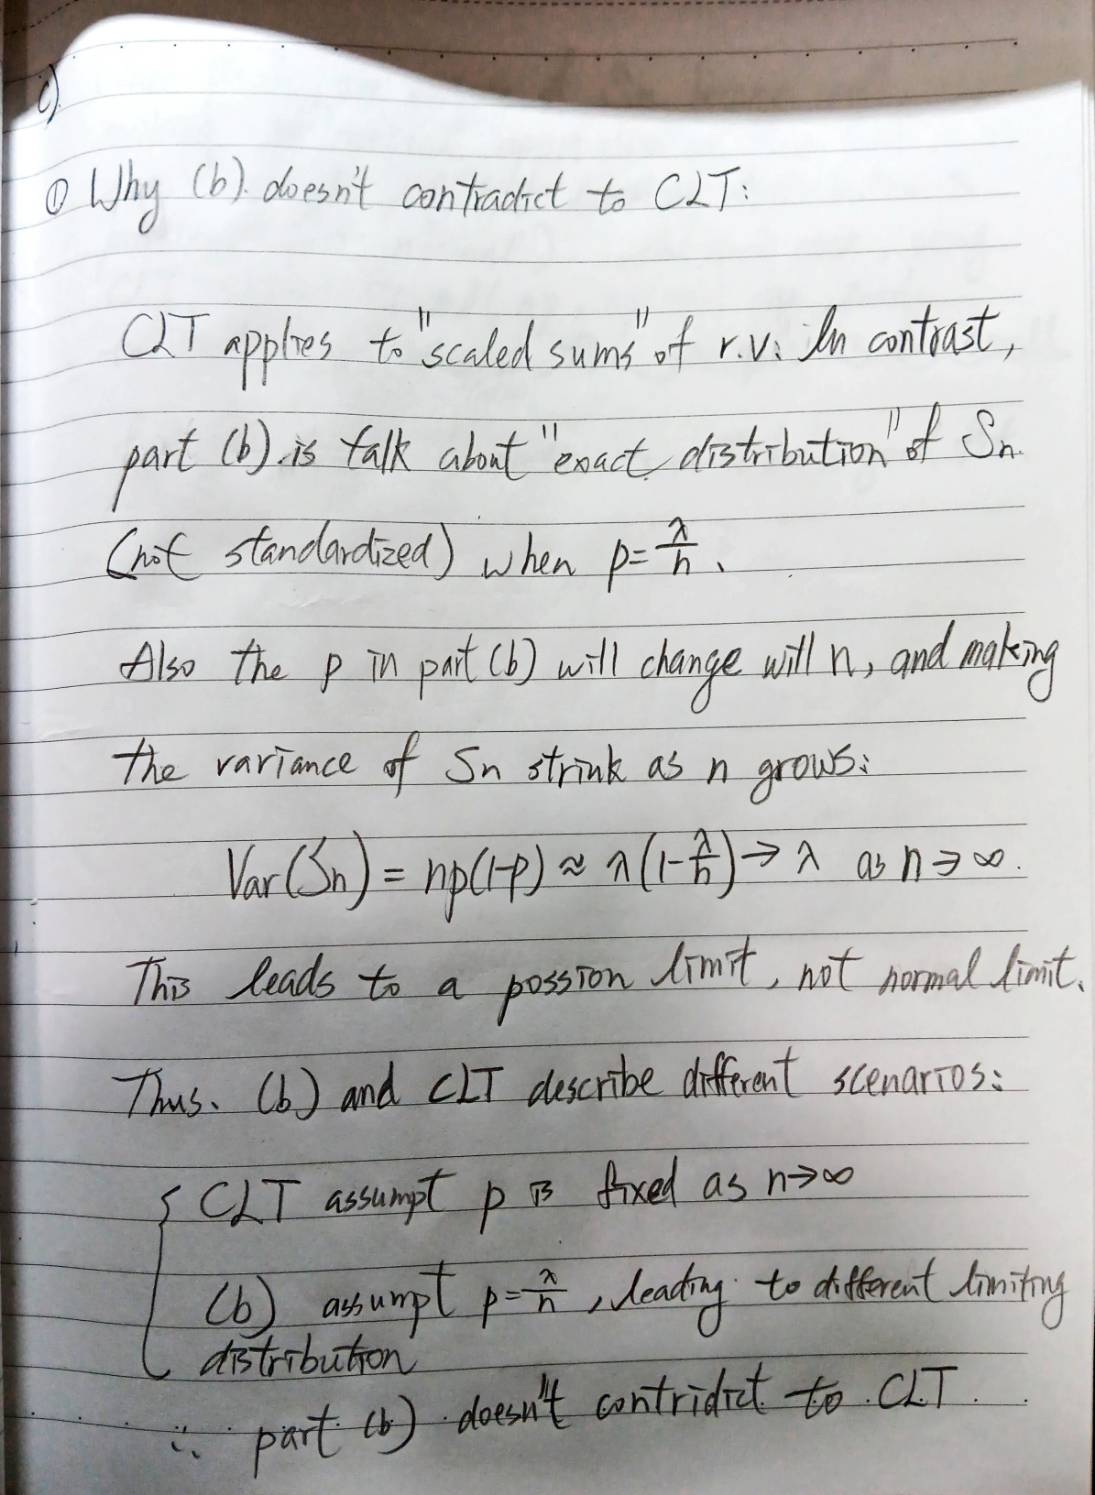 c)
① Why (b). doesn't contradict to CLT:
CLT applies to "scaled sums" of r.v. In contrast,
part (b). is talk about "exact distribution" of Sn
(not standardized) when p=λ/n.
Also the p in part (b) will change will n, and making
the variance of Sn strink as n grows:
Var(Sn) = np(1-p) ≈ λ(1-λ/n) → λ as n→∞.
This leads to a possion limit, not normal limit.
Thus. (b) and CLT describe different scenarios:
{ CLT assumpt p is fixed as n→∞
(b) assumpt p=λ/n, leading to different limiting
distribution
∴ part (b) doesn't contridict to CLT.